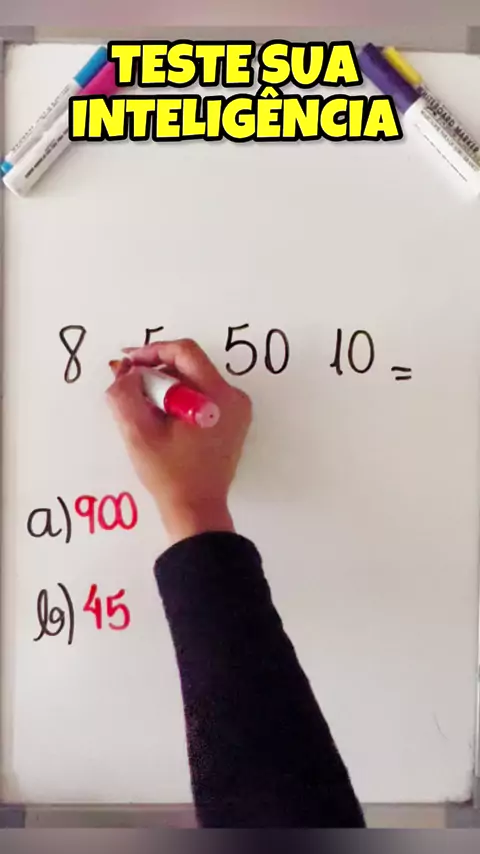 TESTE SUA
INTELIGÊNCIA
8 5 50 10 =
a) 900
b) 45